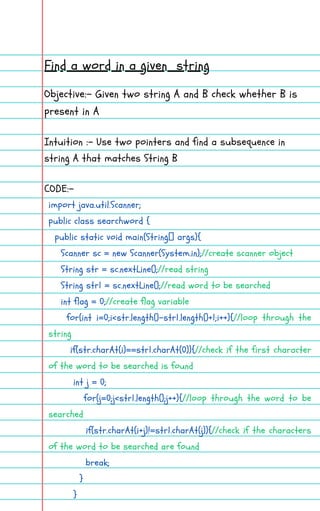 Find a word in a given string
Objective:- Given two string A and B check whether B is
present in A
Intuition :- Use two pointers and find a subsequence in
string A that matches String B
CODE:-
import java.util.Scanner;
public class searchword {
public static void main(String[] args){
Scanner sc = new Scanner(System.in);//create scanner object
String str = sc.nextLine();//read string
String str1 = sc.nextLine();//read word to be searched
int flag = 0;//create flag variable
for(int i=0;i<str.length()-str1.length()+1;i++){//loop through the
string
if(str.charAt(i)==str1.charAt(0)){//check if the first character
of the word to be searched is found
int j = 0;
for(j=0;j<str1.length();j++){//loop through the word to be
searched
if(str.charAt(i+j)!=str1.charAt(j)){//check if the characters
of the word to be searched are found
break;
}
}